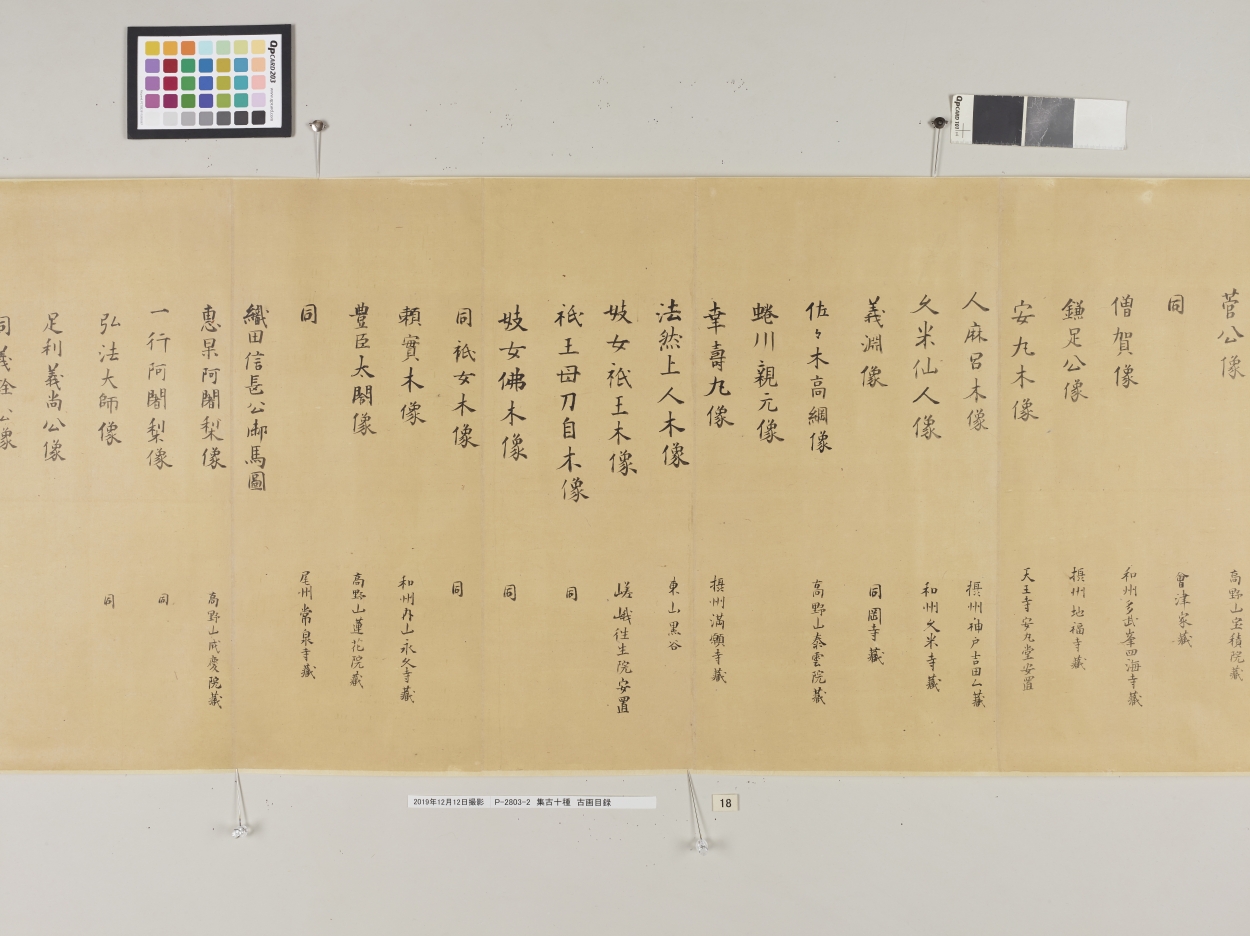 菅公像　高野山宝積院蔵
同　會津家蔵
僧賀像　和州多武峯四海寺蔵
鎌足公像　摂州地福寺蔵
安丸木像　天王寺安丸堂安置
人麻呂木像　摂州神戸吉田厶蔵
久米仙人像　和州久米寺蔵
義淵像　同岡寺蔵
佐々木高綱像　高野山泰雲院蔵
蜷川親元像
幸壽丸像　摂州満願寺蔵
法然上人木像　東山黒谷
妓女祇王木像　嵯峨往生院安置
祇王母刀自木像　同
妓女佛木像　同
同祇女木像　同
頼實木像　和州内山永久寺蔵
豊臣太閤像　高野山蓮花院蔵
同　尾州常泉寺蔵
織田信長公御馬圖
惠杲阿闍梨像　高野山成慶院蔵
一行阿闍梨像　同
弘法大師像　同
足利義尚公像
同義詮公像
2019年12月12日撮影　P-2803-2　集古十種　古画目録
18
QpCARD 203
QpCARD 101